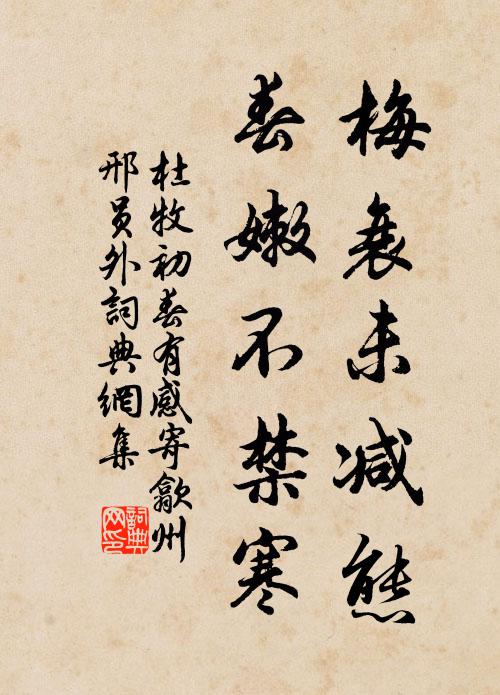 梅衰未減態
春嫩不禁寒
杜牧初春有感寄歙州
邢員外詞典網集
詞典网印